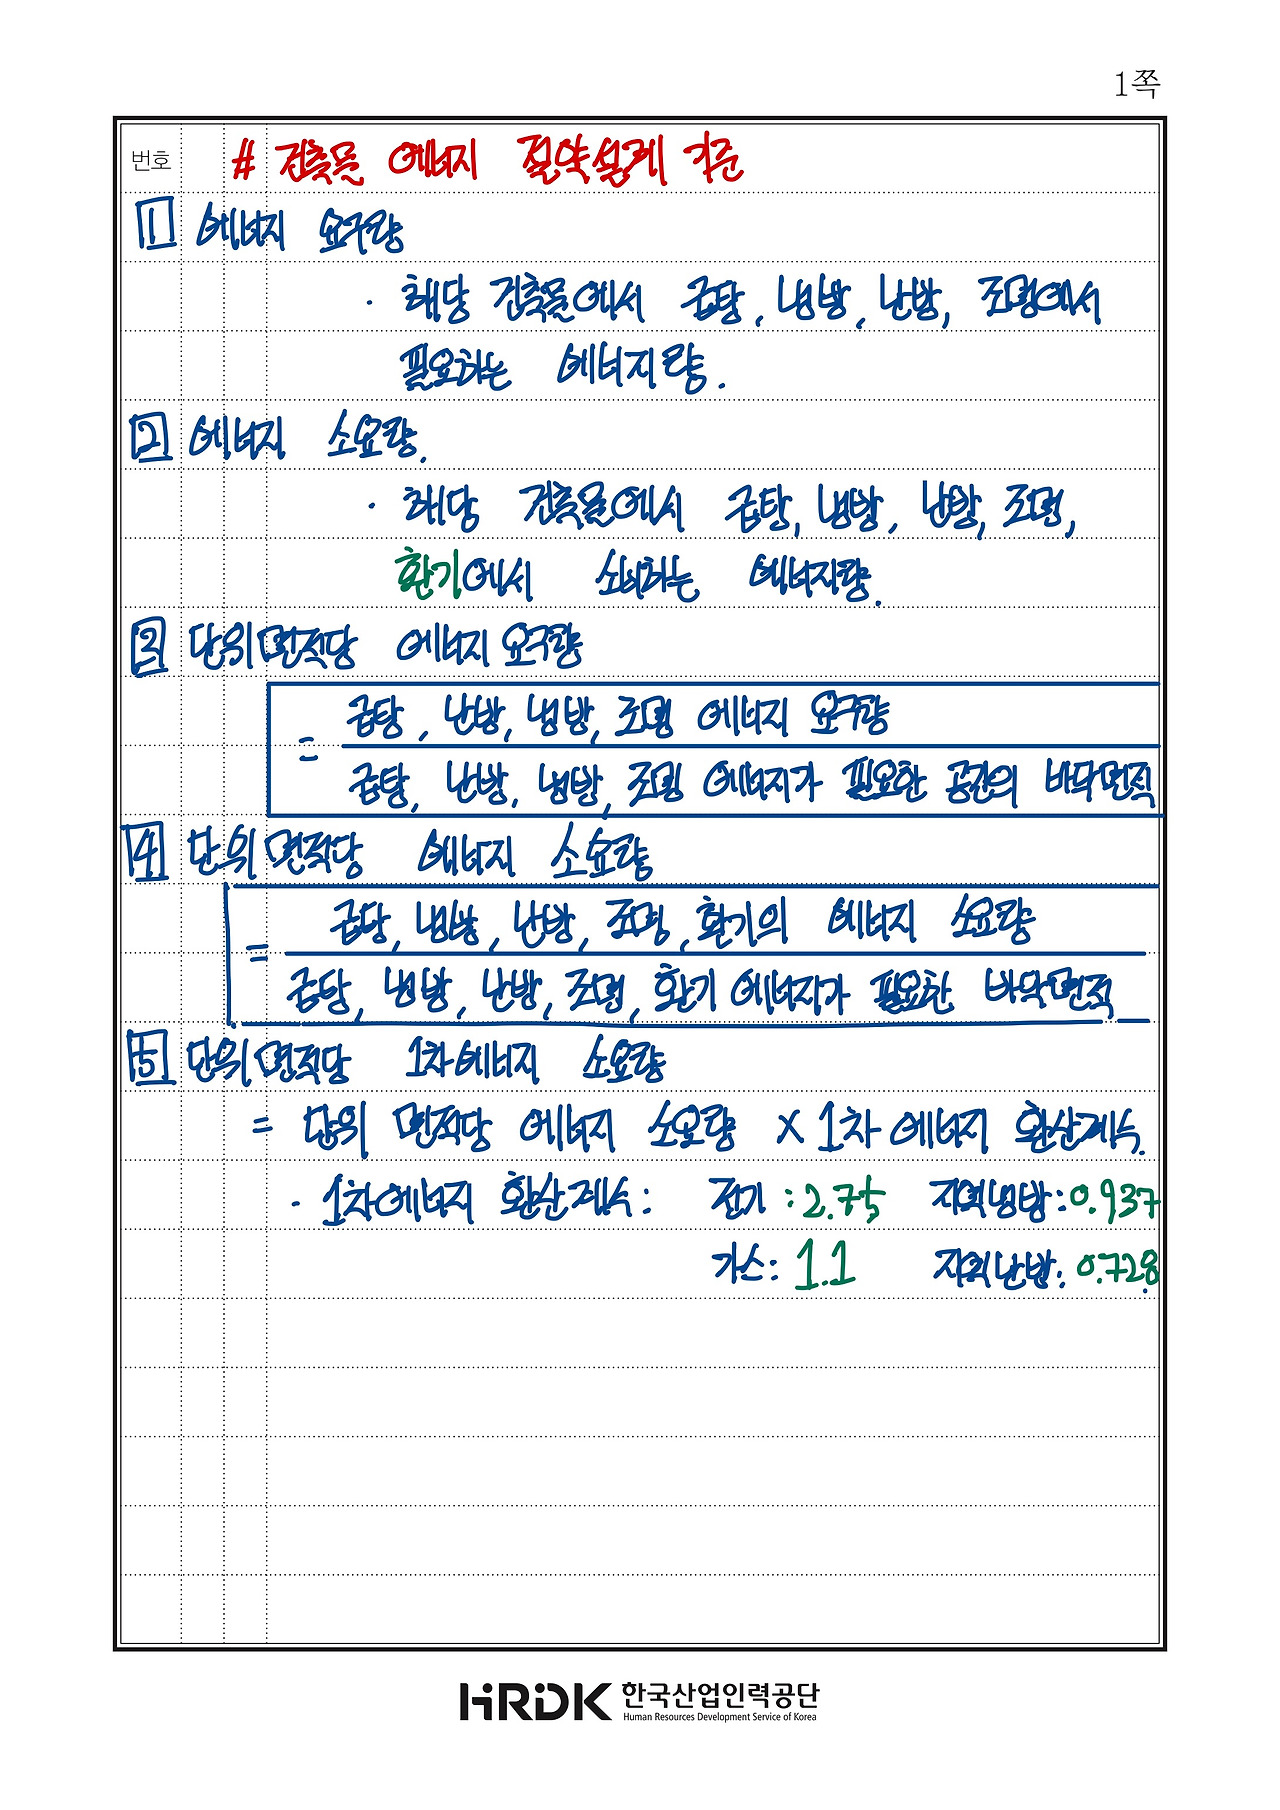 1쪽
번호 # 건축물 에너지 절약설계 기준
1 에너지 요구량
· 해당 건축물에서 급탕, 냉방, 난방, 조명에서
필요하는 에너지량.
2 에너지 소요량.
· 해당 건축물에서 급탕, 냉방, 난방, 조명,
환기에서 소비하는 에너지량.
3 단위면적당 에너지 요구량
= 급탕, 난방, 냉방, 조명 에너지 요구량
급탕, 난방, 냉방, 조명 에너지가 필요한 공간의 바닥면적
4 단위면적당 에너지 소요량
= 급탕, 냉방, 난방, 조명, 환기의 에너지 소요량
급탕, 냉방, 난방, 조명, 환기 에너지가 필요한 바닥면적
5 단위면적당 1차에너지 소요량
= 단위 면적당 에너지 소요량 x 1차 에너지 환산계수.
· 1차에너지 환산계수: 전기 : 2.75 지역냉방: 0.937
가스: 1.1 지역난방: 0.728
HRDK 한국산업인력공단
Human Resources Development Service of Korea